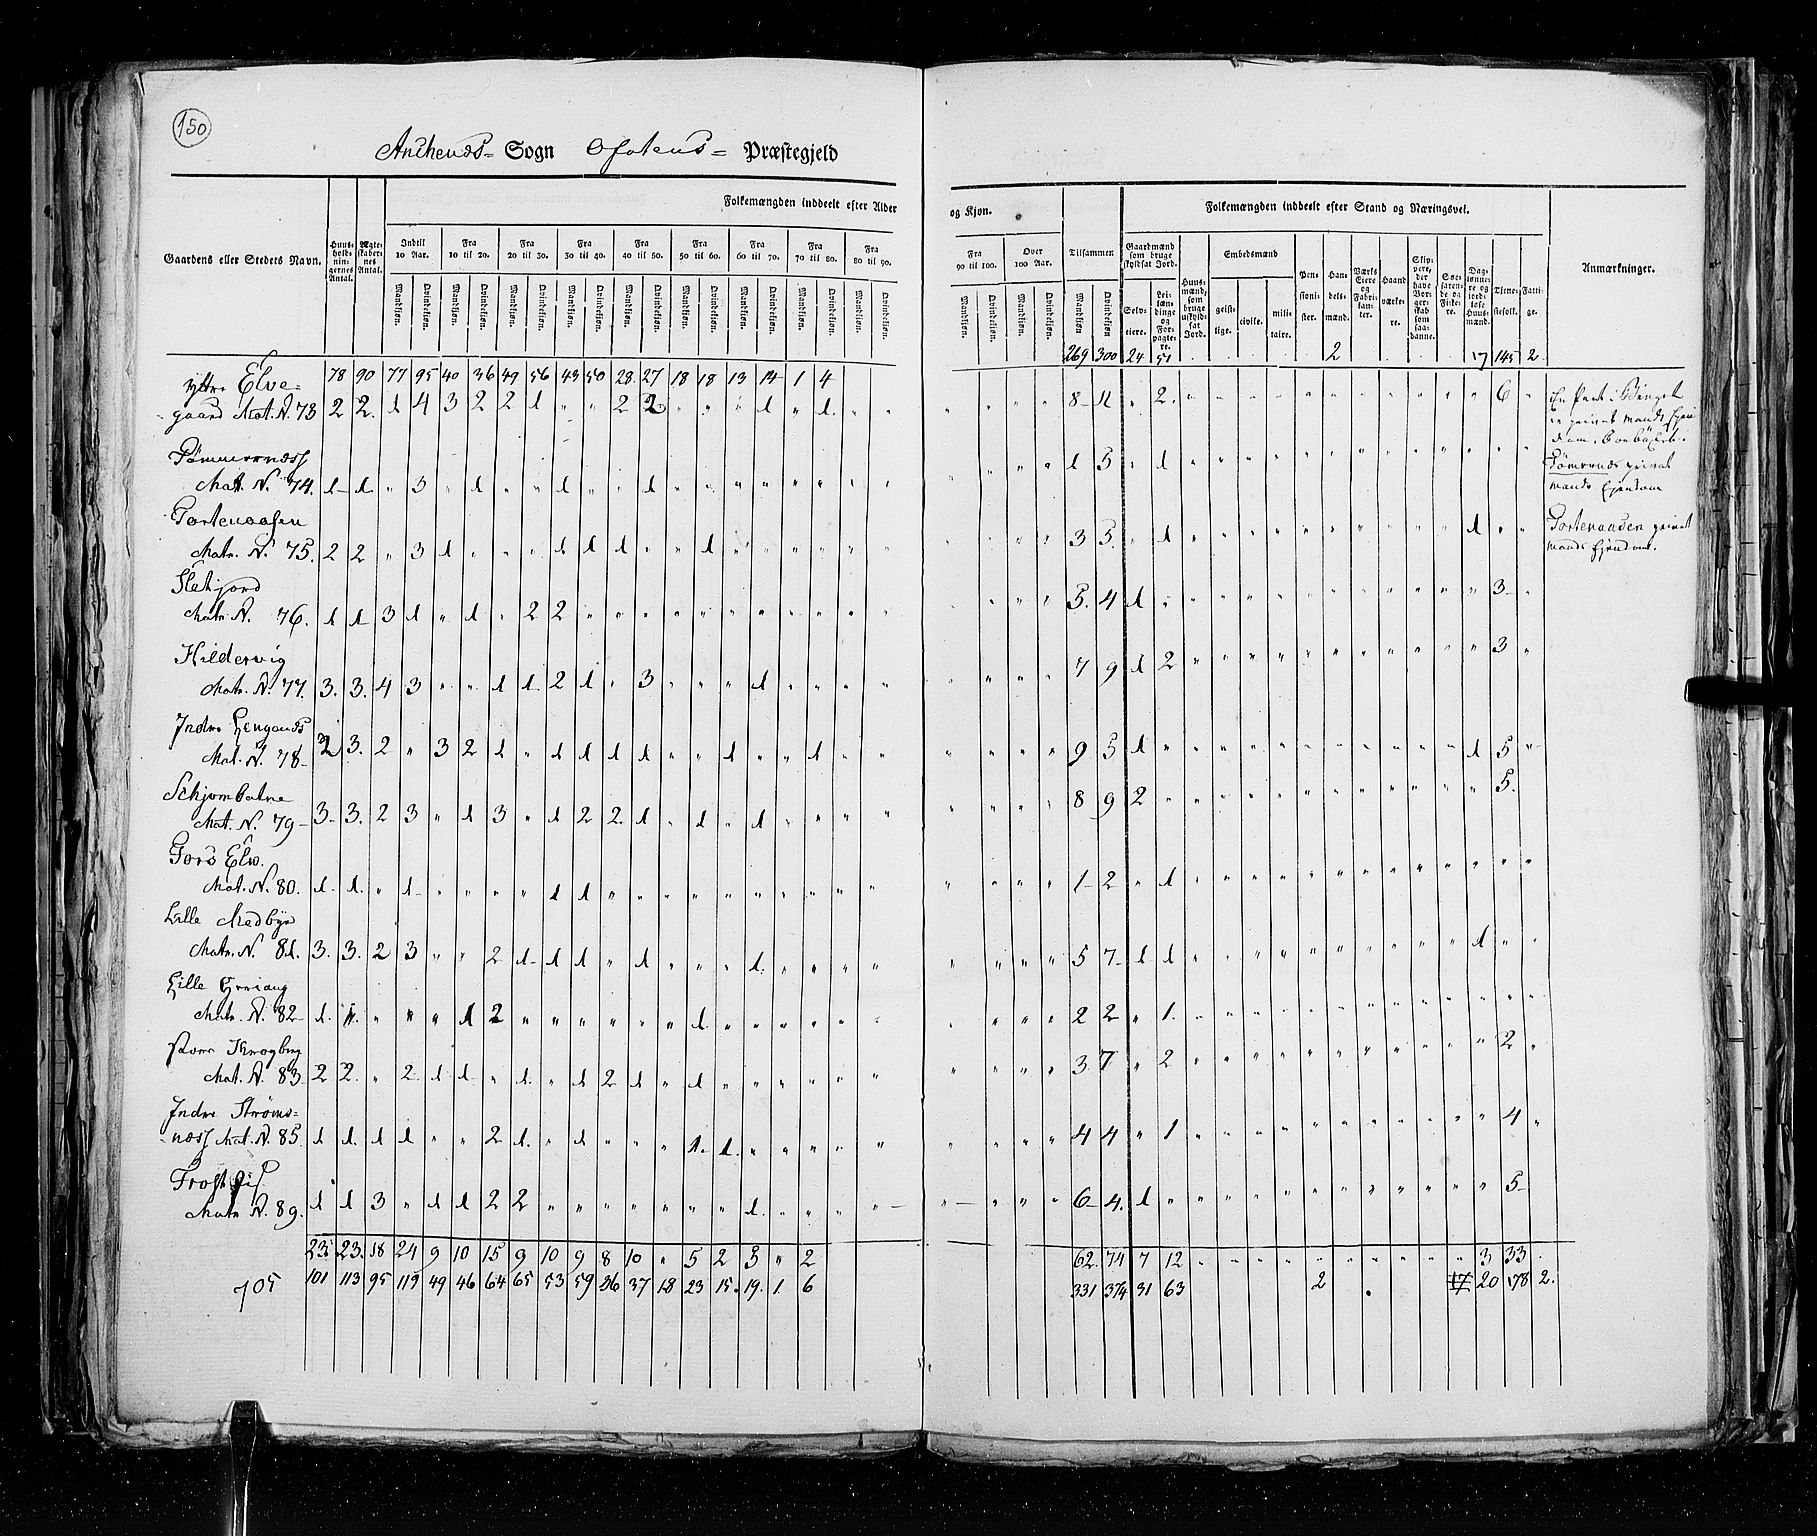 150
Anchenæs- Sogn Ofotens- Præstegjeld
Folkemængden inddeelt efter Alder og Kjøn.
Folkemængden inddeelt efter Stand og Næringsvei.
Gaardens eller Stedets Navn.
Huusholdningernes Antal.
Ægteskabernes Antal.
Indtil 10 Aar.
Fra 10 til 20.
Fra 20 til 30.
Fra 30 til 40.
Fra 40 til 50.
Fra 50 til 60.
Fra 60 til 70.
Fra 70 til 80.
Fra 80 til 90.
Fra 90 til 100.
Over 100 Aar.
Tilsammen
Mandkjøn. Qvindekjøn.
Gaardmænd som bruge skyldsat Jord.
Selveiere.
Leilændinge og Forpagtere.
Huusmænd, som bruge uskyldsat Jord.
Embedsmænd
geistlige.
civile.
militaire.
Pensionister.
Handelsmænd.
Værks Eiere og Fabrikanter.
Haandværkere.
Skippere, der have Borgerskab som saadanne.
Søefarende og Fiskere.
Daglønnere og jordløse Huusmænd.
Tjenestefolk.
Fattige.
Anmærkninger.
78 90 77 95 40 36 49 56 43 50 28 27 18 18 13 14 1 4 269 300 24 51 2 17 145 2
ytre Elvegaard Mat. N. 73 2 2. 1 4 3 2 2 1 " " 2 2 " " " 1 " 1. 8 11 " 2. 6
Tømmernæss
Mat. N. 74. 1 1 " 3 " 1 " " 1 " " 1 1 5 " 1
Tømernæs privat mands Ejendom
Tortenaasen
Matr. N. 75. 2 2 " 3 1 " " " 1 1 1 " " 1 3 5. " 1 1
Tortenaasen privat mands Ejendom.
Sletjord
Matr N. 76. 1 1 3 1 " 1 " 2 2 5. 4 1 3
Hildervig
Matr. N. 77. 3. 3. 4 3 " " 1 1 2 1 " 3 " " " 1 7 9 1 2 3
Indre Lenganæs
Mat. N. 78 3. 2 " 3 2 1 " 1 1 1 1 " " 1 " " 1 9 5 1 1 5
Schjombotne
Mat. N. 79 3. 3. 2 3 " 1 3 " 1 2 2. 1 " 1 " 1 8 9 2 5.
Mat. N. 80. 1. 1. " 1 " " " " 1 1 1 2 " 1
Lille Medbye
Matr. N. 81. 3. 3. 2 3 " " 2 1 1 1 " 1 " " " 1. 5 7 1 1 1
Lille
Matr. N. 82 1. " " " 1 2 1. 2 2 " 1.
Mat. N. 83 2 2. " 2 1 1 " 1. " 1 2 1 " 1 3 7 " 2 2
Indre Strømsnæss Mat. N. 85. 1 1. 1 1 " " 2 1. " 1 " " " 1. 1. 4 4 " 1 4
Matr N. 89. 1 1 3 " 1 1 2 2 1. 6 4. 1 5
23. 23. 18 24 9 10 15 9 10 9 8 10 " 5 2 3 " 2 62. 74 7 12 3 33
705 101 113 95 119 49 46 64 65 53 59 36 37 18 23 15. 19. 1. 6 331 374 31 63 2 17 20 178 2.